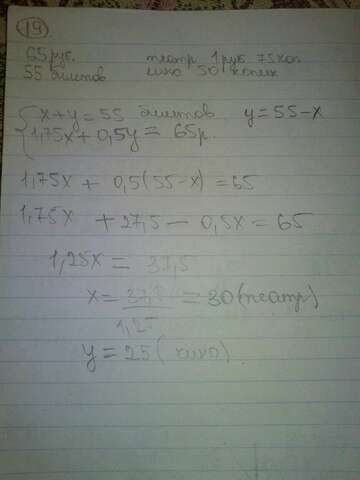 19
65 руб. театр 1 руб 75 коп
55 билетов кино 50 копеек
x + y = 55 билетов y = 55 - x
1,75x + 0,5y = 65р.
1,75x + 0,5(55 - x) = 65
1,75x + 27,5 - 0,5x = 65
1,25x = 37,5
x = 37,5 / 1,25 = 30 (театр)
y = 25 (кино)